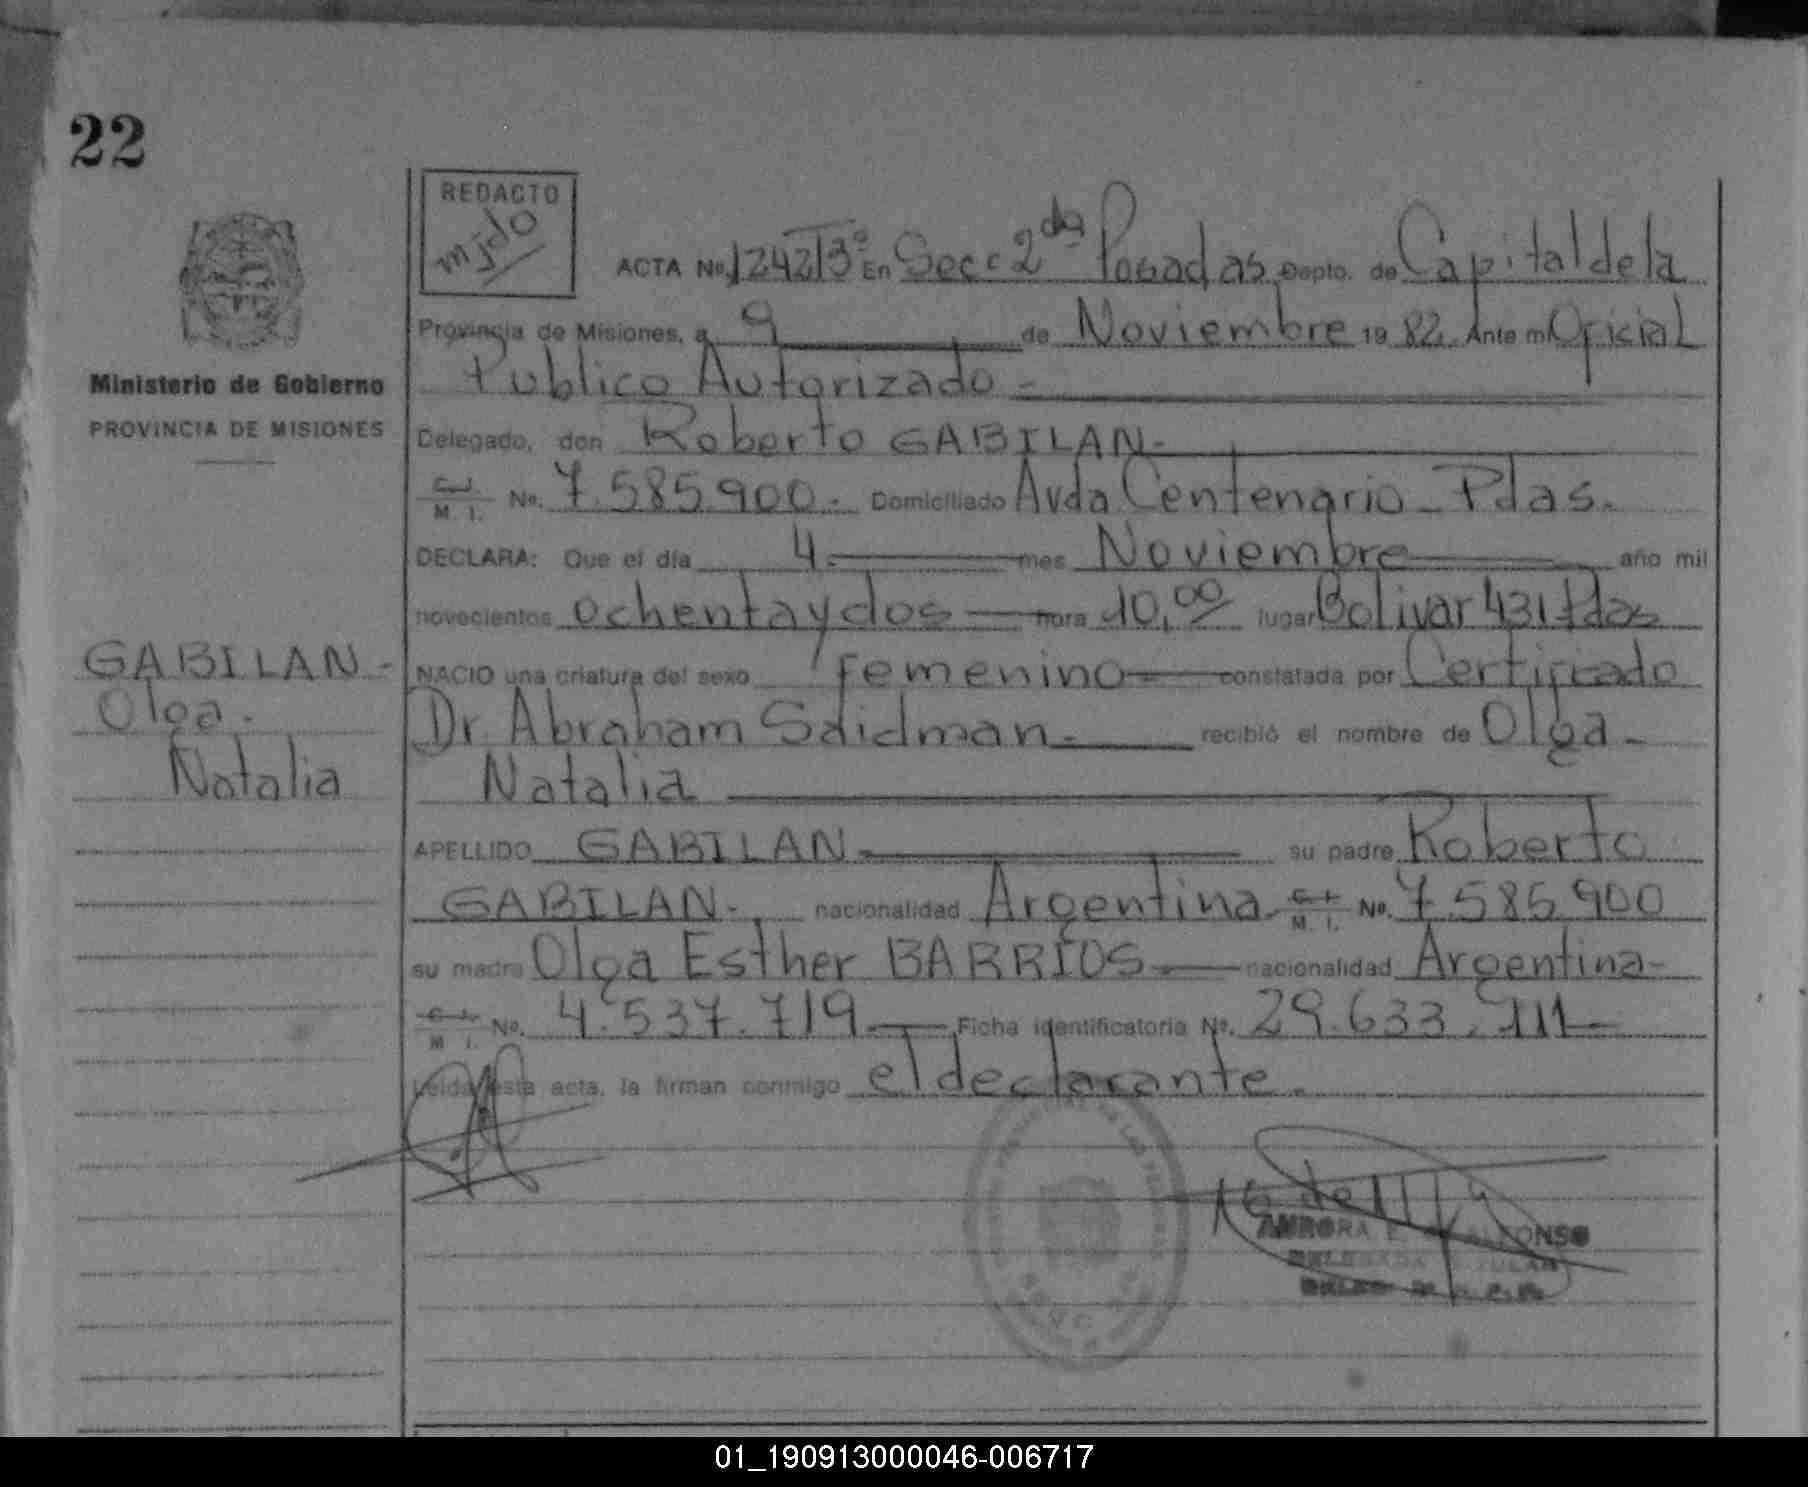 22
REDACTO
mjdo
ACTA No. 1242 T3º En Secc 2da Posadas Depto. de Capital de la
Provincia de Misiones, a 9 de Noviembre 19 82. Ante mi Oficial
Ministerio de Gobierno
Publico Autorizado -
PROVINCIA DE MISIONES
Delegado, don Roberto GABILAN-
C. I. M. I. No. 7.585.900.- Domiciliado Avda Centenario - Pdas.
DECLARA: Que el día 4.- mes Noviembre año mil
novecientos ochentaydos hora 10,00 lugar Bolivar 431 Pdas
GABILAN -
NACIO una criatura del sexo femenino constatada por Certificado
Olga.
Dr. Abraham Saidman.- recibió el nombre de Olga -
Natalia
Natalia
APELLIDO GABILAN.- su padre Roberto
GABILAN.- nacionalidad Argentina C. I. M. I. No. 7.585.900
su madre Olga Esther BARRIOS nacionalidad Argentina-
C. I. M. I. No. 4.537.719.- Ficha identificatoria No. 29.633.111-
Leida esta acta, la firman conmigo el declarante.
16 de
AURORA E. ALFONSO
DELEGADA TITULAR
01_190913000046-006717